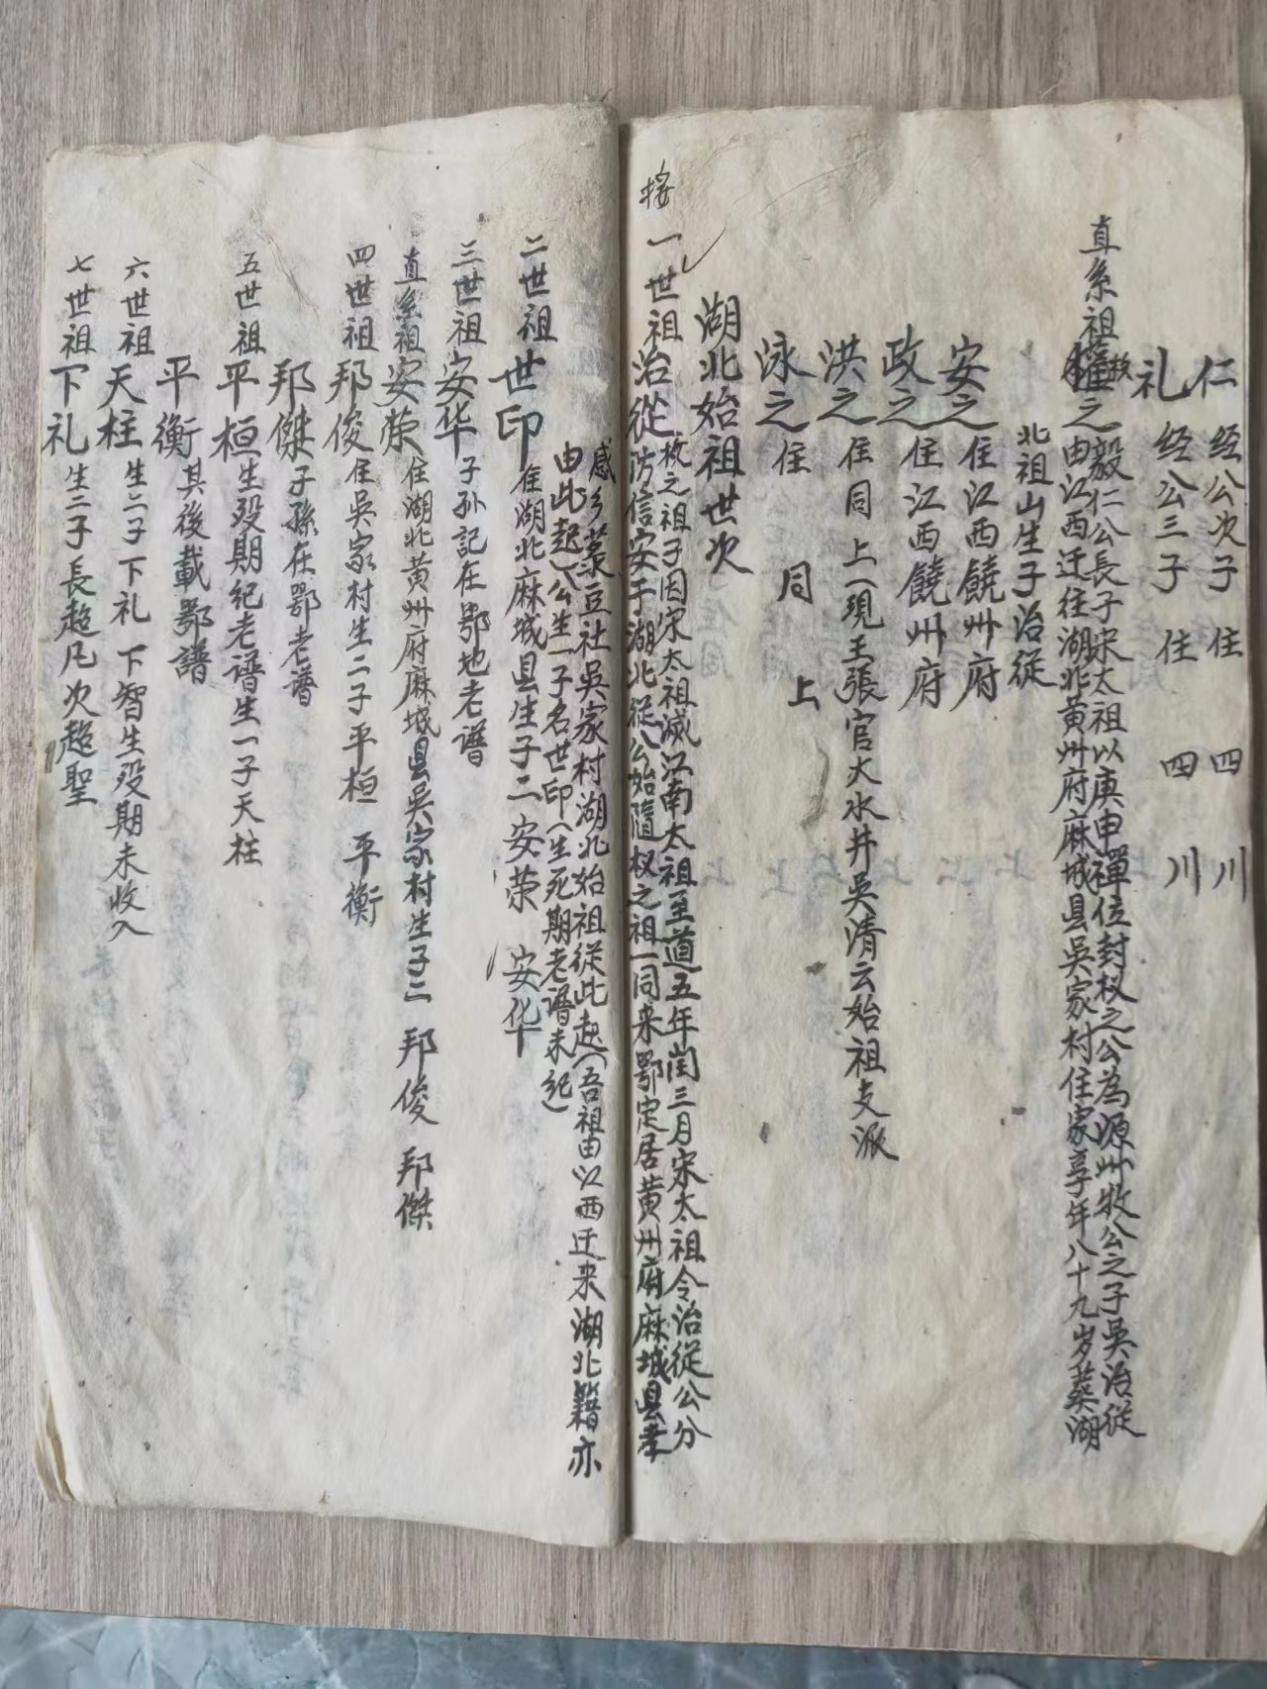 仁 经公次子 住 四 川
礼 经公三子 住 四 川
直系祖权之 毅仁公長子宋太祖以庚申禪位封权之公為源州牧公之子吳治從
由江西迁往湖北黄州府麻城县吳家村住家享年八十九岁葬湖
北祖山生子治從
安之 住江西饒州府
政之 住江西饒州府
洪之 住同上(現王張官大水井吳清云始祖支派
泳之 住 同 上
湖北始祖世次
按
一世祖治從 枚之祖子因宋太祖滅江南太祖至道五年闰三月宋太祖令治從公分
防信安于湖北從公始隨权之祖一同来鄂定居黄州府麻城县孝
感乡菉豆社吳家村湖北始祖從此起(吾祖由以西迁来湖北籍亦
由此起)公生一子名世印(生死期老谱未紀)
二世祖 世印 住湖北麻城县生子二 安荣 安华
三世祖安华 子孙記在鄂地老谱
直系祖安荣 住湖北黄州府麻城县吳家村生子二 邦俊 邦傑
四世祖邦俊 住吳家村生二子平桓 平衡
邦傑 子孫在鄂老谱
五世祖平桓 生殁期紀老谱生一子天柱
平衡 其後載鄂譜
六世祖天柱 生二子下礼 下智生殁期未收入
七世祖下礼 生二子長超凡次超聖